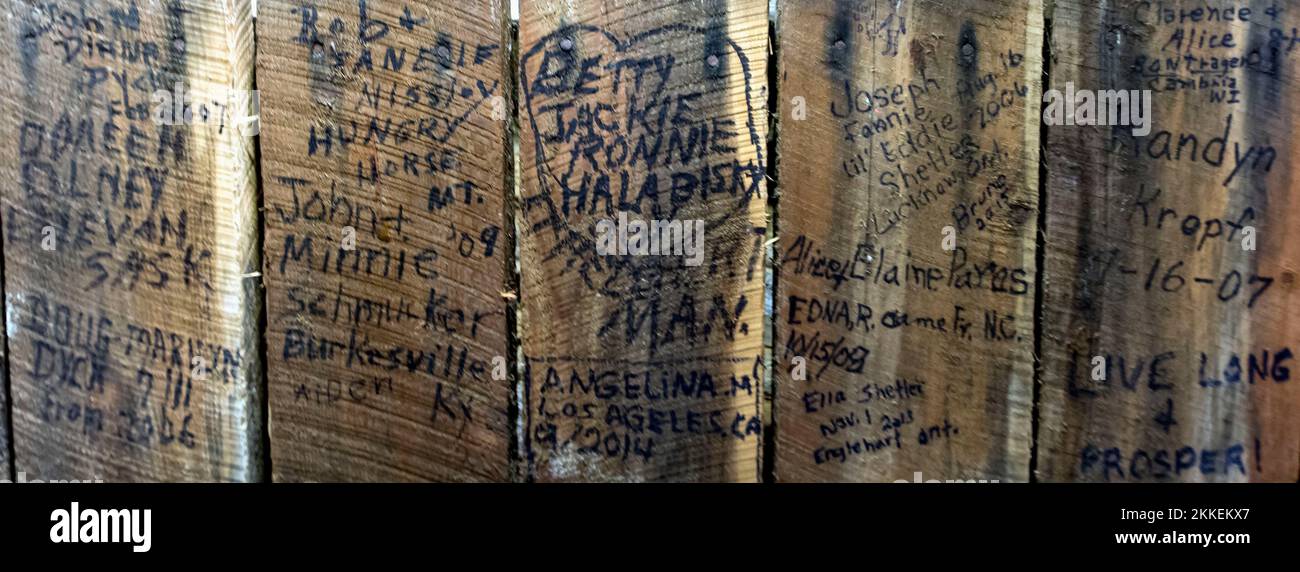 John &
Dianna
Dyck
Feb 2007
DAREEN
OLNEY
5.95K
DOUG-MARILYN
DYCK 7111
from 2006
Bob +
JANELLE
NISSLEY
HUNGRY
HORSE
MT.
'09
John +
Minnie
Schmucker
Burkesville
Ky
AIDEN
BETTY
JACKIE
RONNIE
HALABISKY
MAN.
ANGELINA.M
LOS AGELES, CA
9/2014
Joseph
Fannie
Lil' Eddie
Shetler
Lucknow, Ont.
Aug. 16
2006
Bruno
2015
Alice, Elaine Pares
EDNA, R. came Fr. N.C.
10/15/08
Ella Shetler
Nov. 1 2013
Englehart ont.
Clarence &
Alice
BONTRAGER
Cambria
WI
Randyn
Kropf
-16-07
LIVE LONG
&
PROSPER!
alamy
Image ID: 2KKEKX7
www.alamy.com